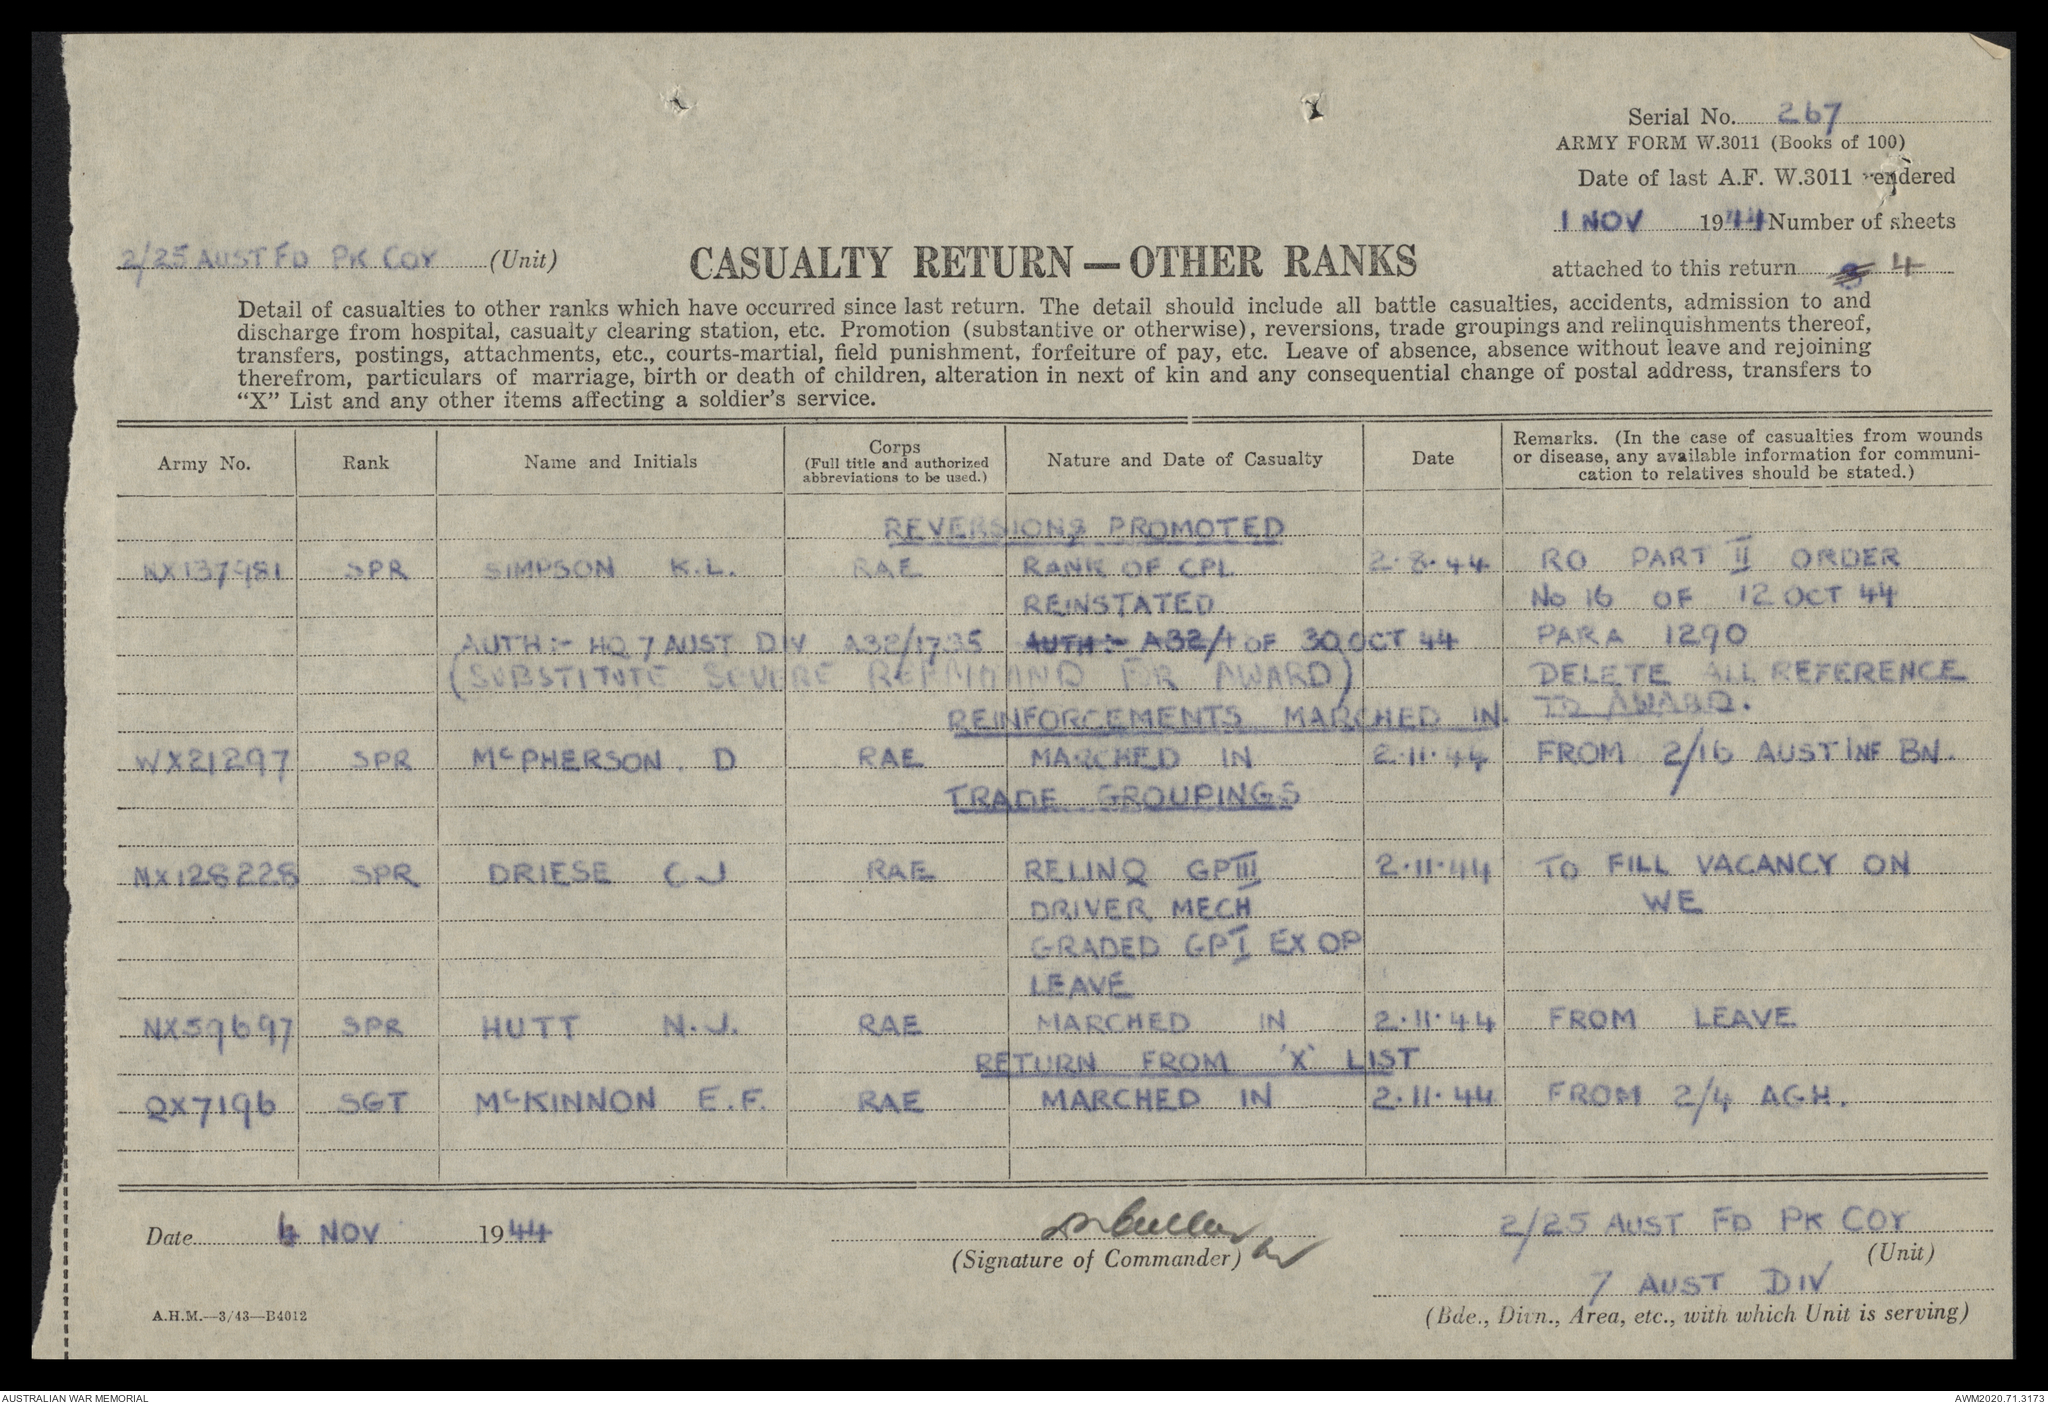 Serial No. 267
ARMY FORM W.3011 (Books of 100)
Date of last A.F. W.3011 rendered
1 NOV 1944 Number of sheets
attached to this return 4
2/25 AUST FD PK COY (Unit)
CASUALTY RETURN — OTHER RANKS
Detail of casualties to other ranks which have occurred since last return. The detail should include all battle casualties, accidents, admission to and
discharge from hospital, casualty clearing station, etc. Promotion (substantive or otherwise), reversions, trade groupings and relinquishments thereof,
transfers, postings, attachments, etc., courts-martial, field punishment, forfeiture of pay, etc. Leave of absence, absence without leave and rejoining
therefrom, particulars of marriage, birth or death of children, alteration in next of kin and any consequential change of postal address, transfers to
"X" List and any other items affecting a soldier's service.
Army No. Rank Name and Initials Corps (Full title and authorized abbreviations to be used.) Nature and Date of Casualty Date Remarks. (In the case of casualties from wounds or disease, any available information for communication to relatives should be stated.)
REVERSIONS PROMOTED
NX137981 SPR SIMPSON K.L. RAE RANK OF CPL 2.8.44 RO PART II ORDER
REINSTATED No 16 OF 12 OCT 44
AUTH:- HQ 7 AUST DIV A32/1735 AUTH:- A32/1 OF 30 OCT 44 PARA 1290
(SUBSTITUTE SEVERE REPMIAND FOR AWARD) DELETE ALL REFERENCE
REINFORCEMENTS MARCHED IN. TO AWARD.
WX21297 SPR McPHERSON. D RAE MARCHED IN 2.11.44 FROM 2/16 AUST INF BN.
TRADE GROUPINGS
NX128228 SPR DRIESE C J RAE RELINQ GP III 2.11.44 TO FILL VACANCY ON
DRIVER MECH WE
GRADED GP I EX OP
LEAVE
NX59697 SPR HUTT N.J. RAE MARCHED IN 2.11.44 FROM LEAVE
RETURN FROM 'X' LIST
QX7196 SGT McKINNON E.F. RAE MARCHED IN 2.11.44 FROM 2/4 AGH.
Date 4 NOV 1944
(Signature of Commander)
2/25 AUST FD PK COY
(Unit)
7 AUST DIV
(Bde., Divn., Area, etc., with which Unit is serving)
A.H.M.—3/43—B4012
AUSTRALIAN WAR MEMORIAL
AWM2020.71.3173